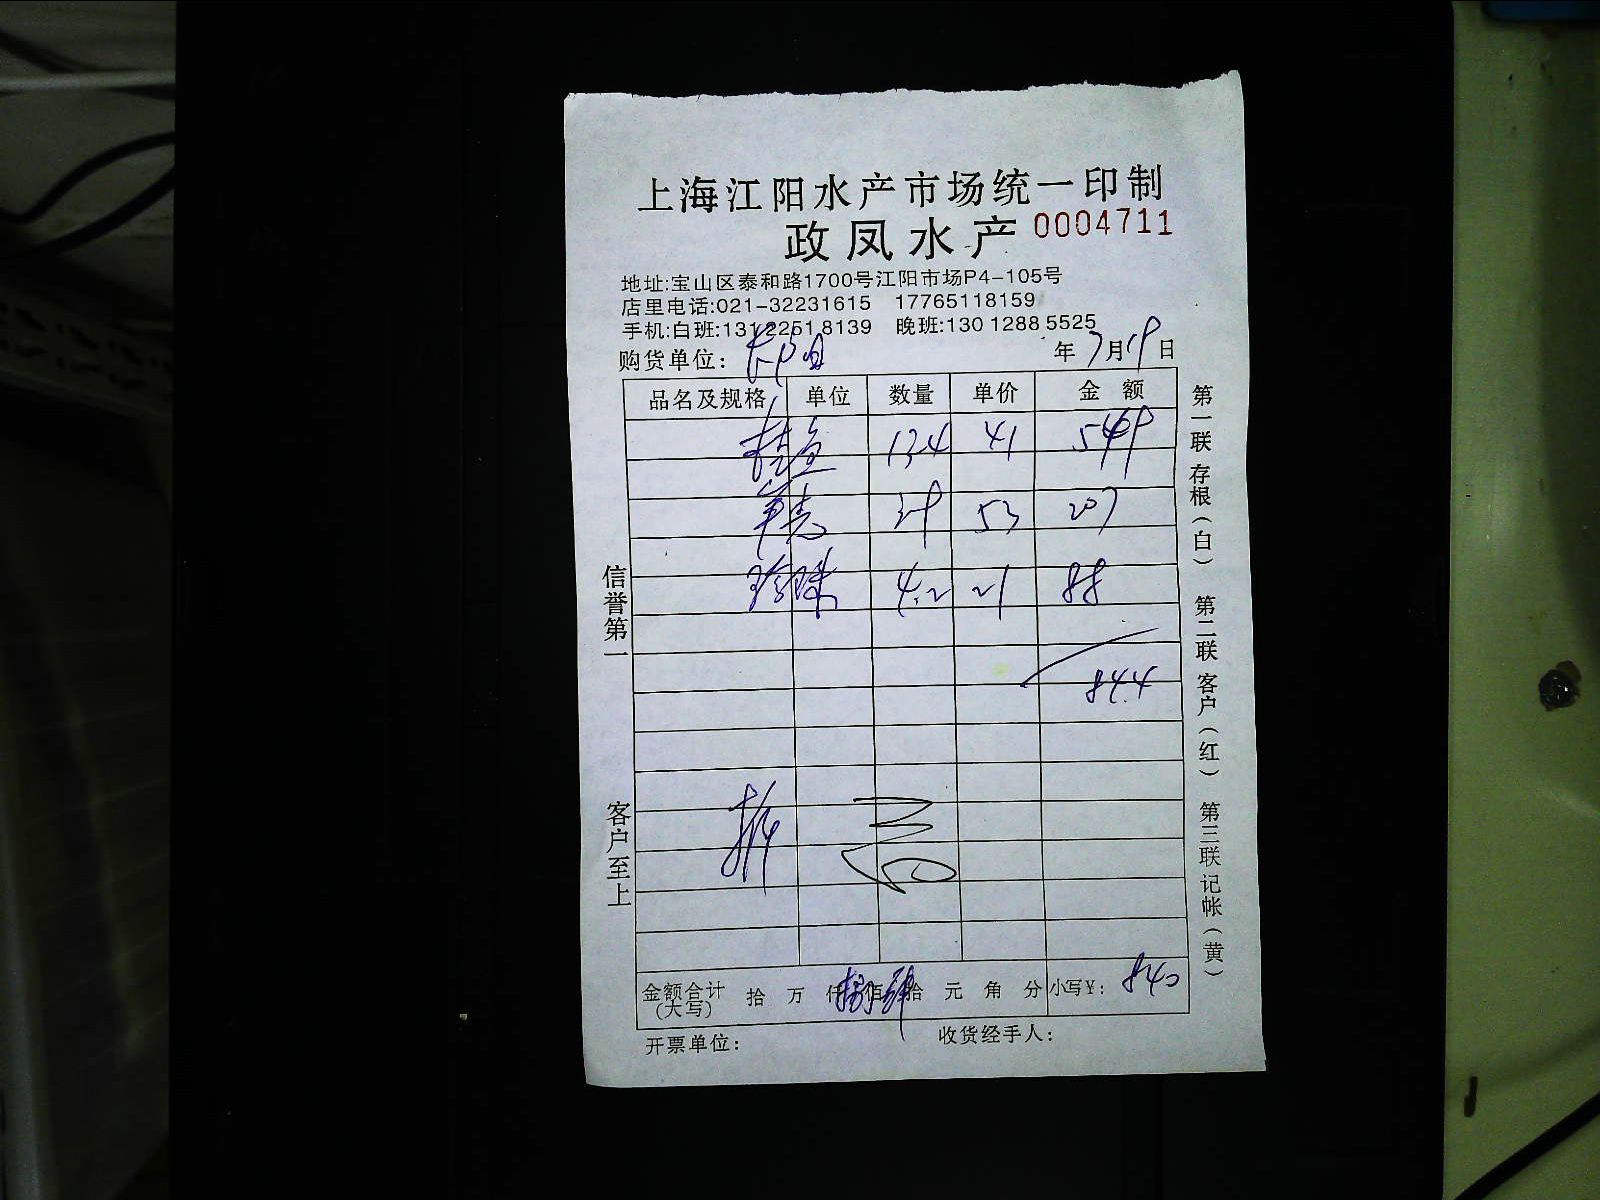 上海江阳水产市场统一印制
政凤水产 0004711
地址:宝山区泰和路1700号江阳市场P4-105号
店里电话:021-32231615 17765118159
手机:白班:131 2251 8139 晚班:130 1288 5525
购货单位: 年 7月19日
品名及规格 单位 数量 单价 金额
桂鱼 134 41 549
39 53 207
珍珠 4.2 21 88
844
金额合计(大写) 拾 万 仟 佰 拾 元 角 分 小写¥: 840
开票单位: 收货经手人:
信誉第一
客户至上
第一联 存根(白) 第二联 客户(红) 第三联 记帐(黄)